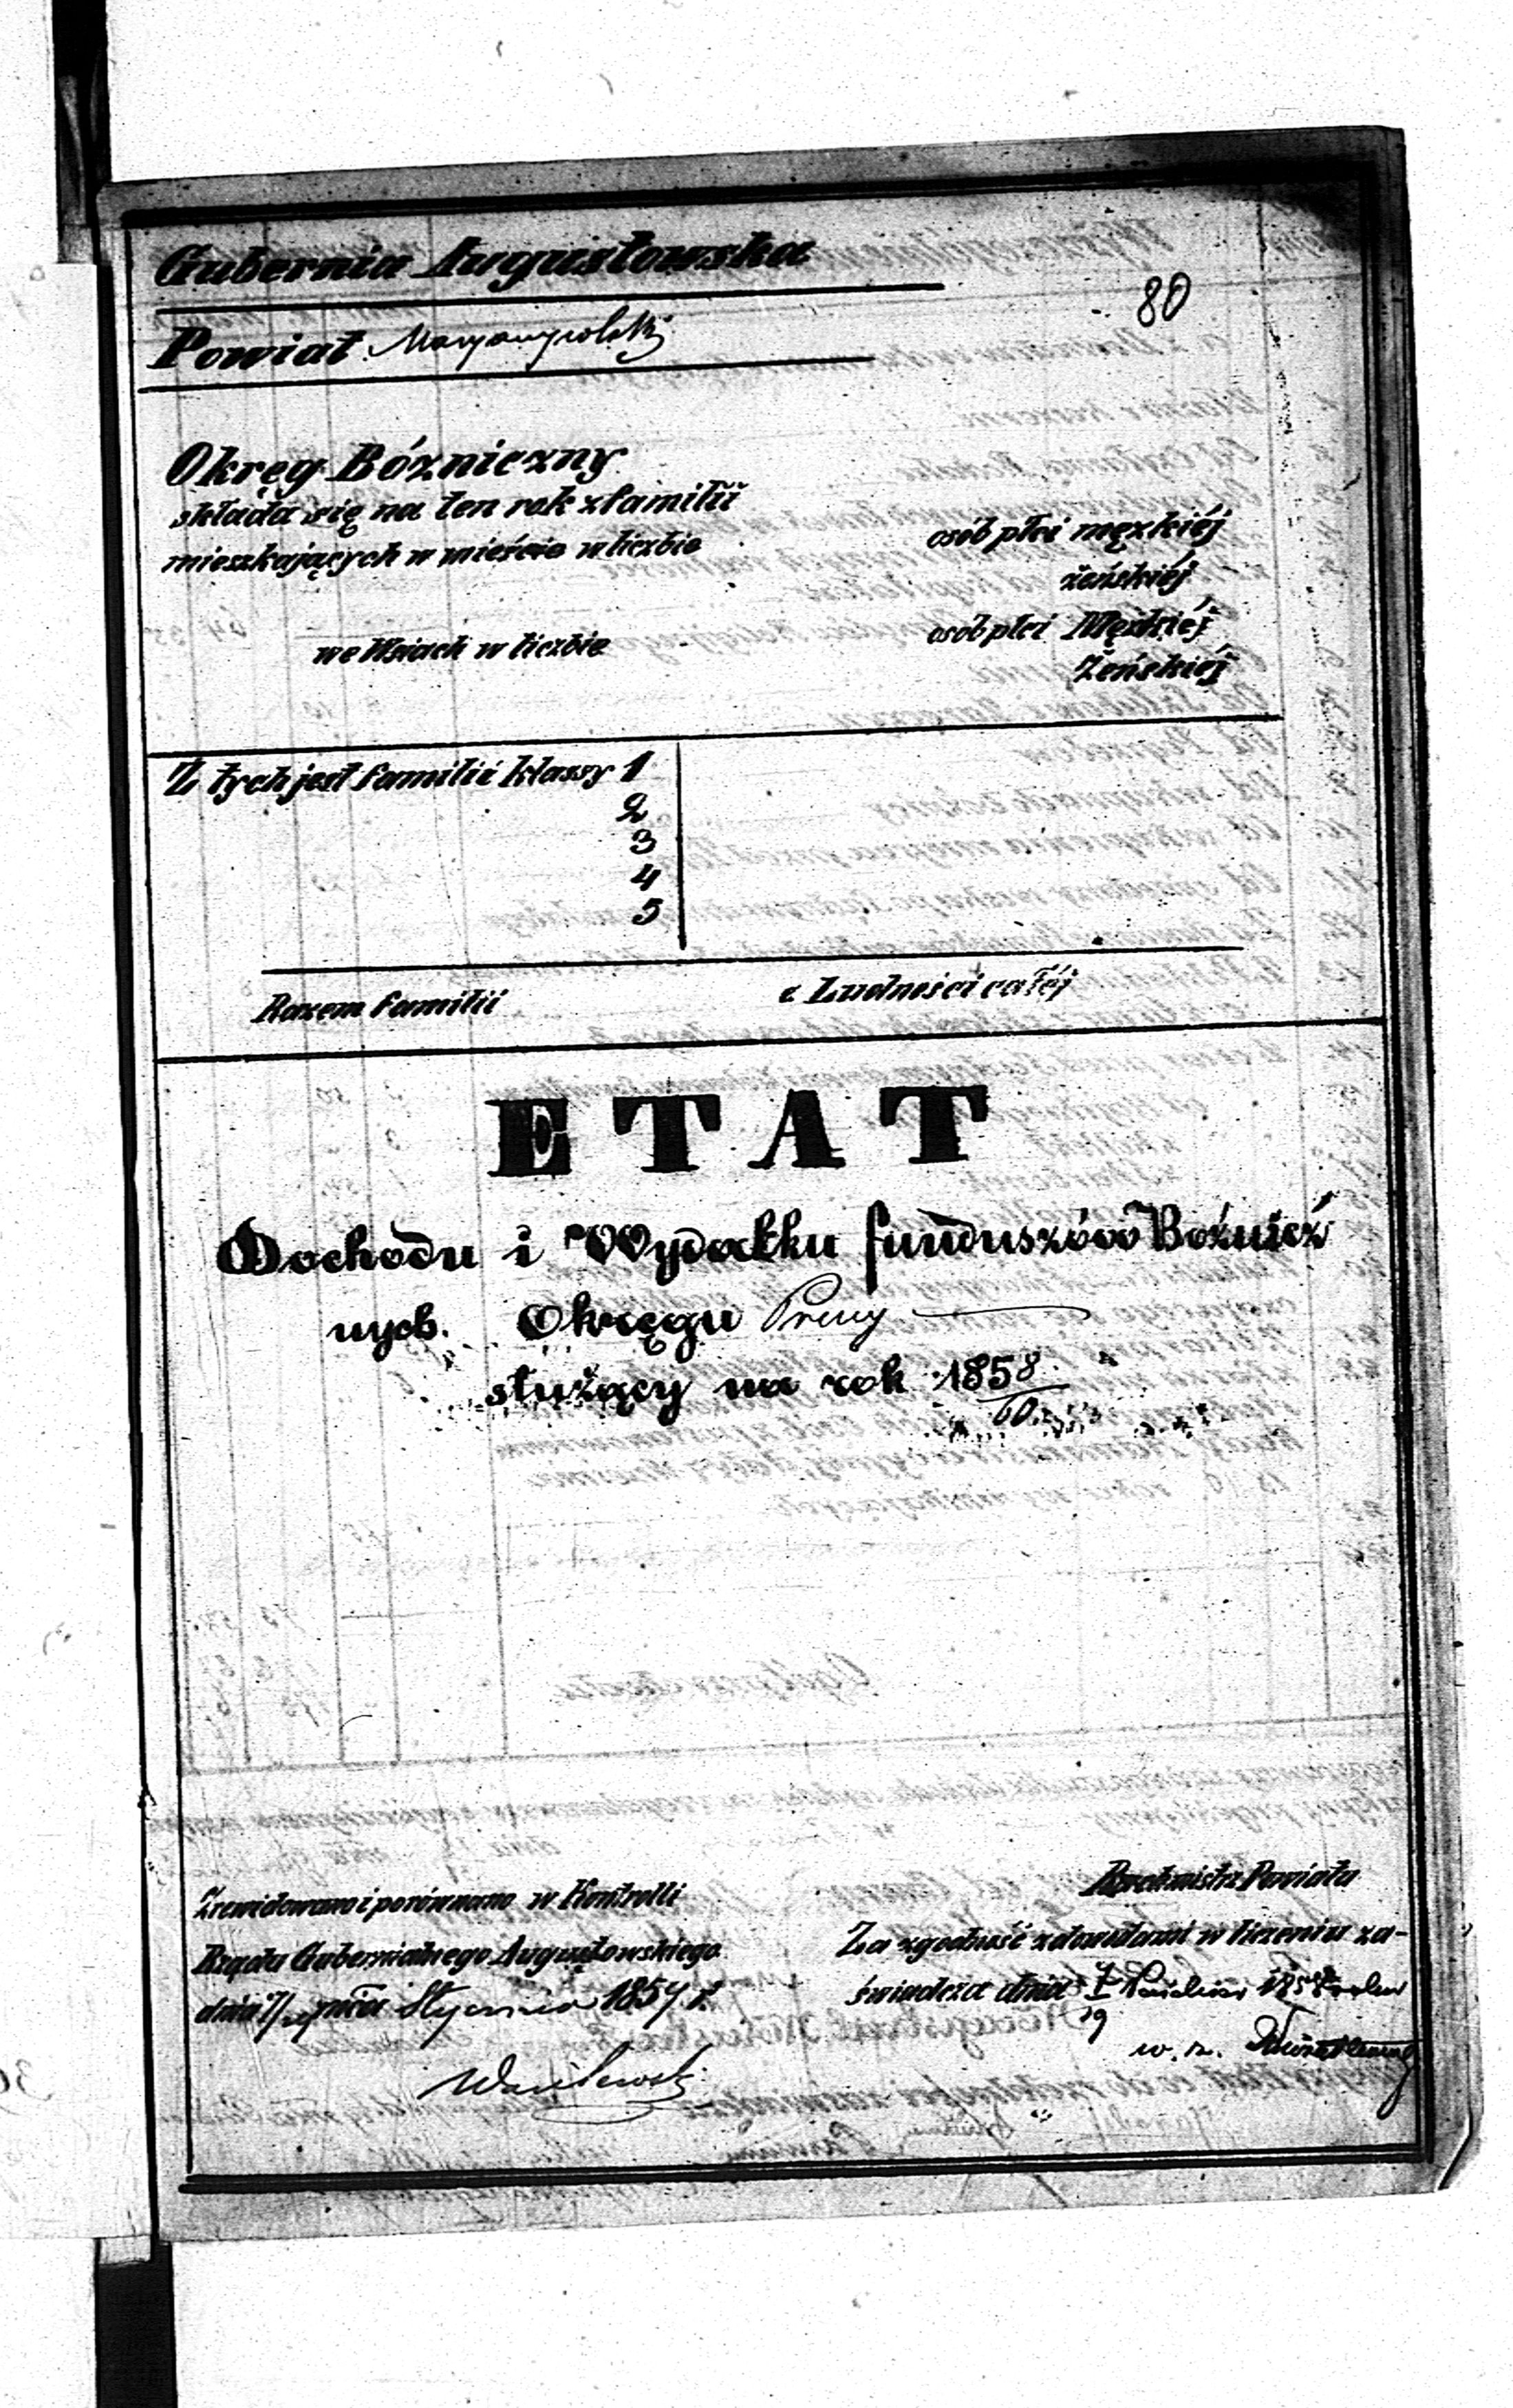 Gubernia Augustowska
80
Powiat Maryampolski
Okręg Bózniczny
składa się na ten rok z familii
mieszkających w mieście w liczbie osób płci męzkiéj
żeńskiéj
we Wsiach w liczbie osób płci Męzkiéj
Żeńskiéj
Z tych jest familii klassy 1
2
3
4
5
Razem familii z Ludności całéj
ETAT
Dochodu i Wydatku funduszów Bóżnicz
nych. Okręgu Preny
służący na rok 1858/60
Zrewidowano i porównano w Kontrolli
Rządu Gubernialnego Augustowskiego
dnia mca Stycznia 1857 r.
Wasilewski
Rachmistrz Powiatu
Za zgodność z dowodami w liczeniu za-
świadcza dnia 7/19 1858 roku
w. z.